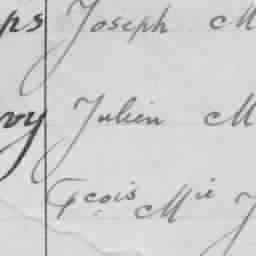 ps Joseph M
vy Julien M
Fcois Mie J